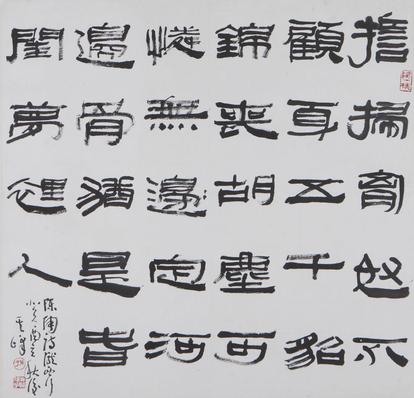 誓掃匈奴不
顧身五千貂
錦喪胡塵可
憐無邊定河
邊骨猶是春
閨夢裡人
陳陶詩隴西行
其峰